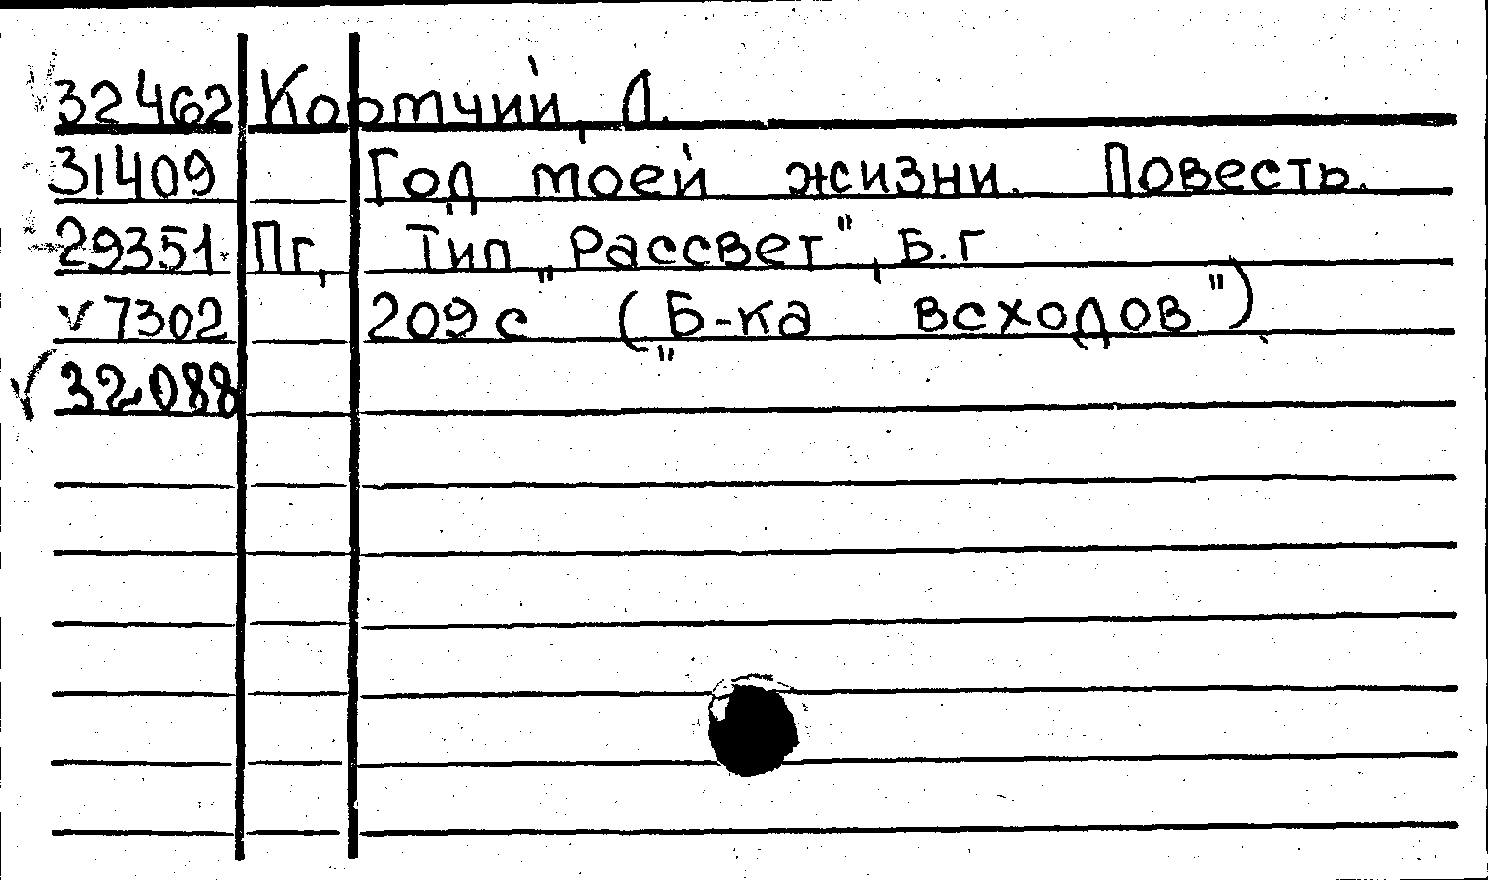 32462 Кормчий, Л.
31409 Год моей жизни. Повесть.
29351 Пг, Тип „Рассвет", Б.г
v 7302 209 с („Б-ка всходов").
√ 32088